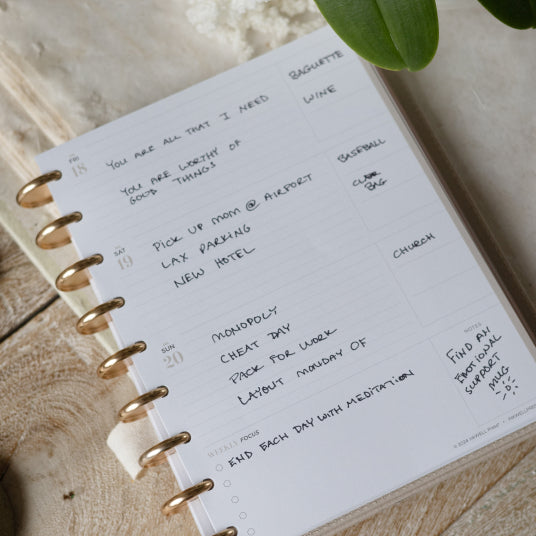 FRI
18
YOU ARE ALL THAT I NEED
YOU ARE WORTHY OF
GOOD THINGS
BAGUETTE
WINE
SAT
19
PICK UP MOM @ AIRPORT
LAX PARKING
NEW HOTEL
BASEBALL
BAG
SUN
20
MONOPOLY
CHEAT DAY
PACK FOR WORK
LAYOUT MONDAY OF
CHURCH
WEEKLY FOCUS
END EACH DAY WITH MEDITATION
NOTES
FIND AN
EMOTIONAL
SUPPORT
MUG
© 2024 MAXWELL PLANT •